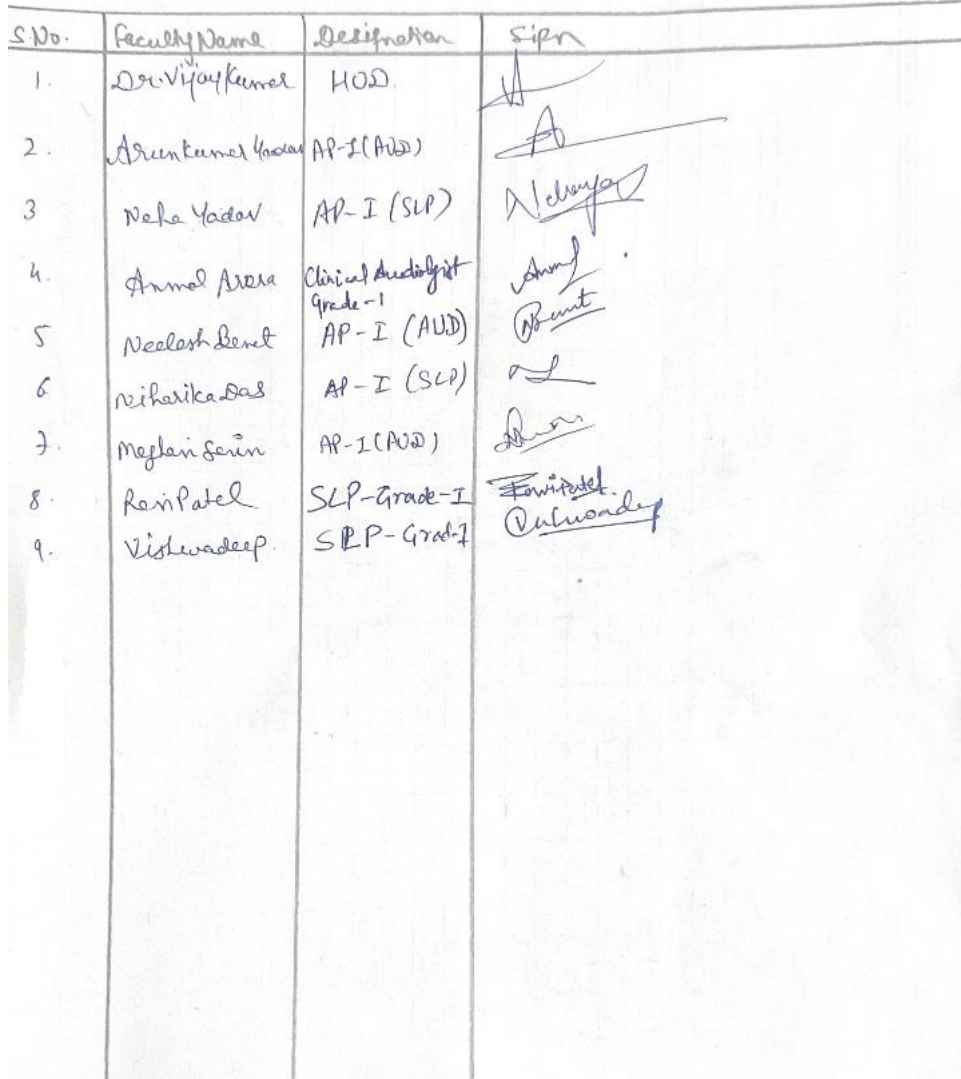 S.No. Faculty Name Designation Sign
1. Dr. Vijay Kumar HOD.
2. Arun Kumar Yadav AP-I (AUD)
3 Neha Yadav AP-I (SLP)
4. Anmol Arora Clinical Audiologist
Grade-1
5 Neelesh Benet AP-I (AUD)
6 Niharika Das AP-I (SLP)
7. Meglan Serin AP-I (AUD)
8. Ravi Patel SLP-Grade-I Ravi Patel.
9. Vishwadeep. SLP-Grad-I Vishwadeep